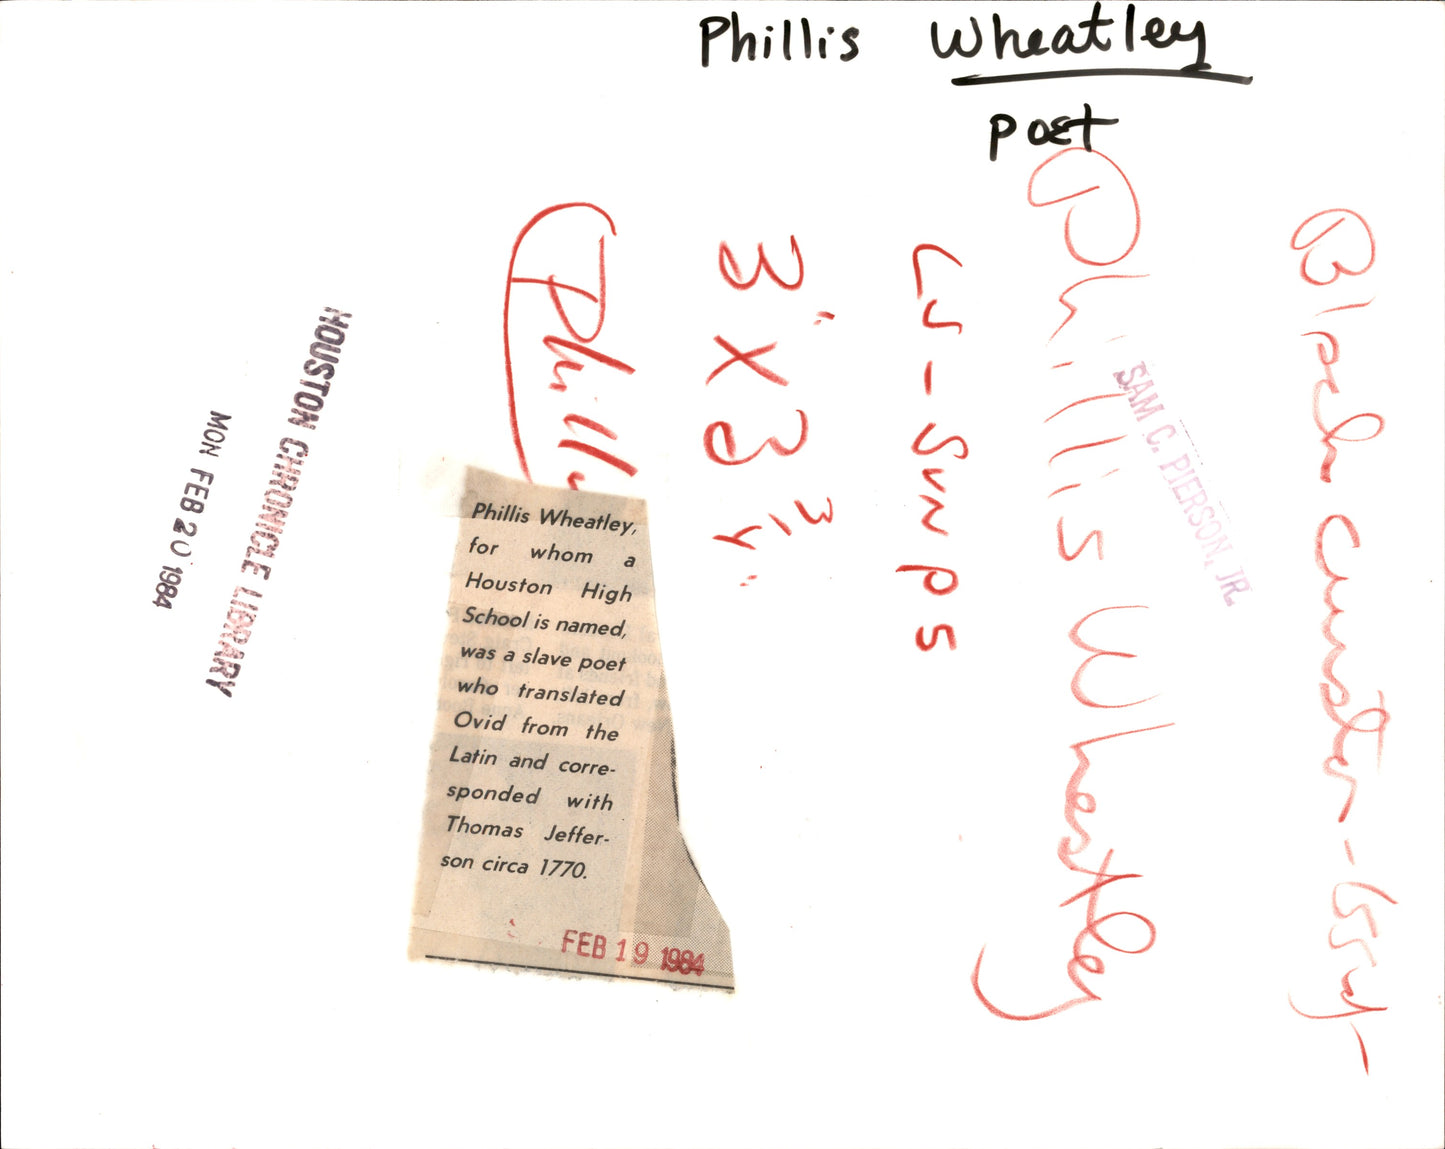 Phillis Wheatley
poet
Phillis Wheatley
SAM C. PIERSON, JR.
3" X 3 3/4"
Phillis
HOUSTON CHRONICLE LIBRARY
MON FEB 20 1984
Phillis Wheatley,
for whom a
Houston High
School is named,
was a slave poet
who translated
Ovid from the
Latin and corre-
sponded with
Thomas Jeffer-
son circa 1770.
FEB 19 1984